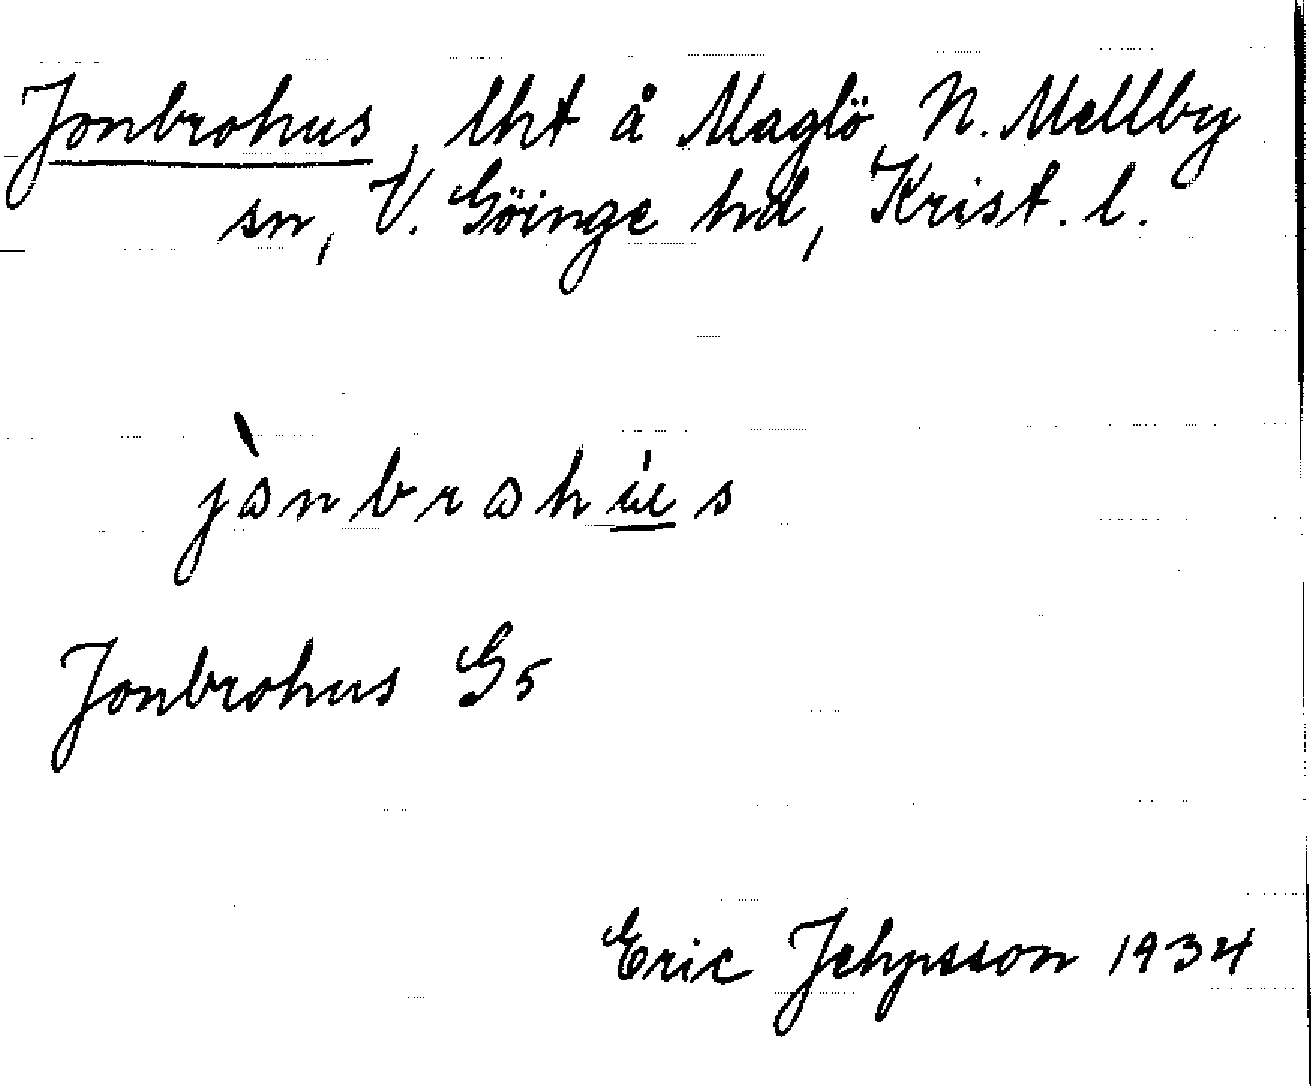 Jonbrohus, lht å Maglö, N. Mellby
sn, V. Göinge hd, Krist. l.
Jonbrohus G5
Eric Jehpsson 1934